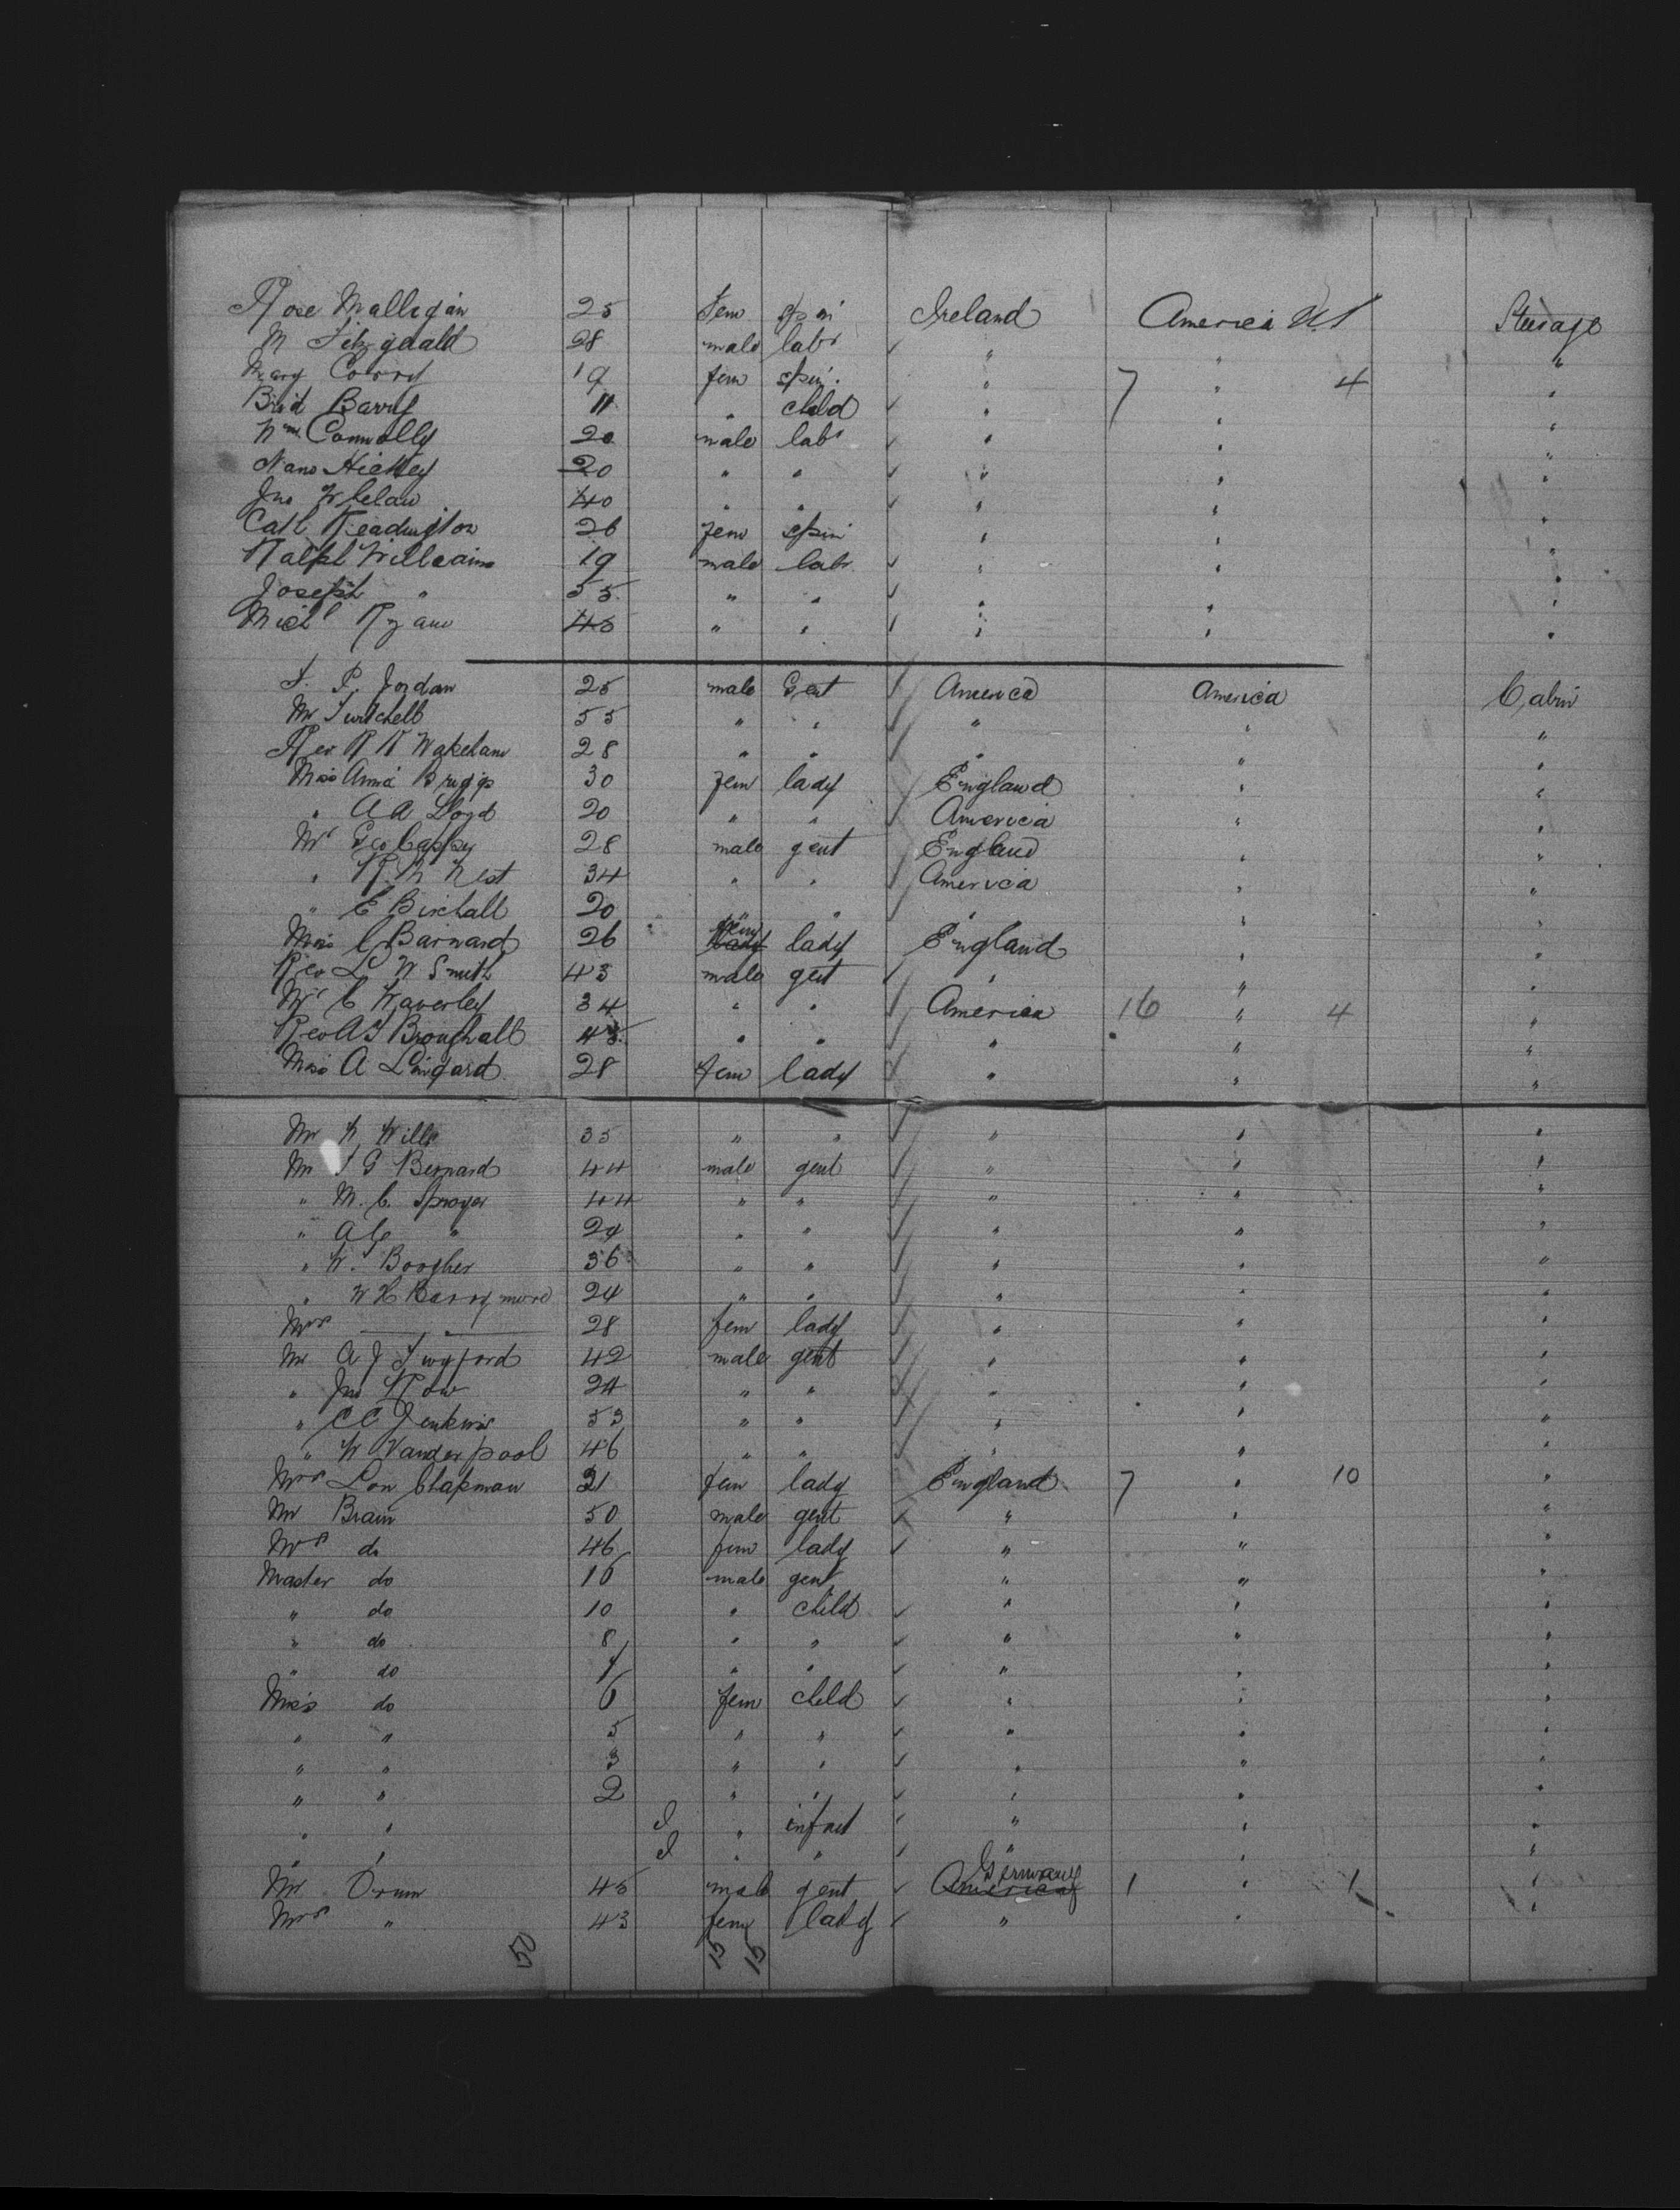 Rose Mulligan 25 Fem spin Ireland America US Steerage
M Fitzgerald 28 male labr " " "
Mary Corry 19 fem spin. " 7 " 4 "
Brid Barry 11 " child " " "
Wm Connolly 20 male labr " " "
Nano Hickey 20 " " " " "
Jno Whelan 40 " " " " "
Cath Readington 26 fem spin " " "
Ralph Williams 19 male labr " " "
Joseph " 55 " " " " "
Michl Ryan 45 " " " " "
J. P. Jordan 25 male Gent America America Cabin
Mr Twitchell 55 " " " " "
Rev R R Wakeham 28 " " " " "
Miss Anna Briggs 30 fem lady England " "
" A A Lloyd 20 " " America " "
Mr Geo 28 male gent England " "
" 34 " " America " "
" E Birchall 20 " " " " "
Miss C Barnard 26 fem lady lady England " "
Rev L W Smith 43 male gent " " "
Mr C Waverley 34 " " America 16 " 4 "
Rev A J Broughall 43 " " " " "
Miss A Lingard 28 fem lady " " "
Mr W Wills 35 " " " " "
Mr J G Bernard 44 male gent " " "
" M. C. 44 " " " " "
" A C " 24 " " " " "
" W. Boogher 36 " " " " "
" W H Barrymore 24 " " " " "
Mrs — " — 28 fem lady " " "
Mr A J Twyford 42 male gent " " "
" Jno Row 24 " " " " "
" C C Jenkins 53 " " " " "
" W Vanderpool 46 " " " " "
Mrs Lon Chapman 21 fem lady England 7 " 10 "
Mr Brain 50 male gent " " "
Mrs do 46 fem lady " " "
Master do 16 male gent " " "
" do 10 " child " " "
" do 8 " " " " "
" do 7 " " " " "
Miss do 6 fem child " " "
" " 5 " " " " "
" " 3 " " " " "
" " 2 " " " " "
" " " infant " " "
" " " " " " "
Mr Orum 45 male gent Germany America 1 " 1 "
Mrs " 43 fem lady " " "
50 15 15